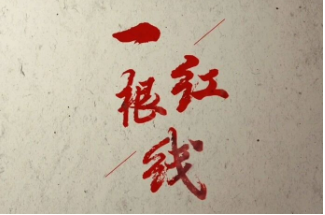 一根
红线